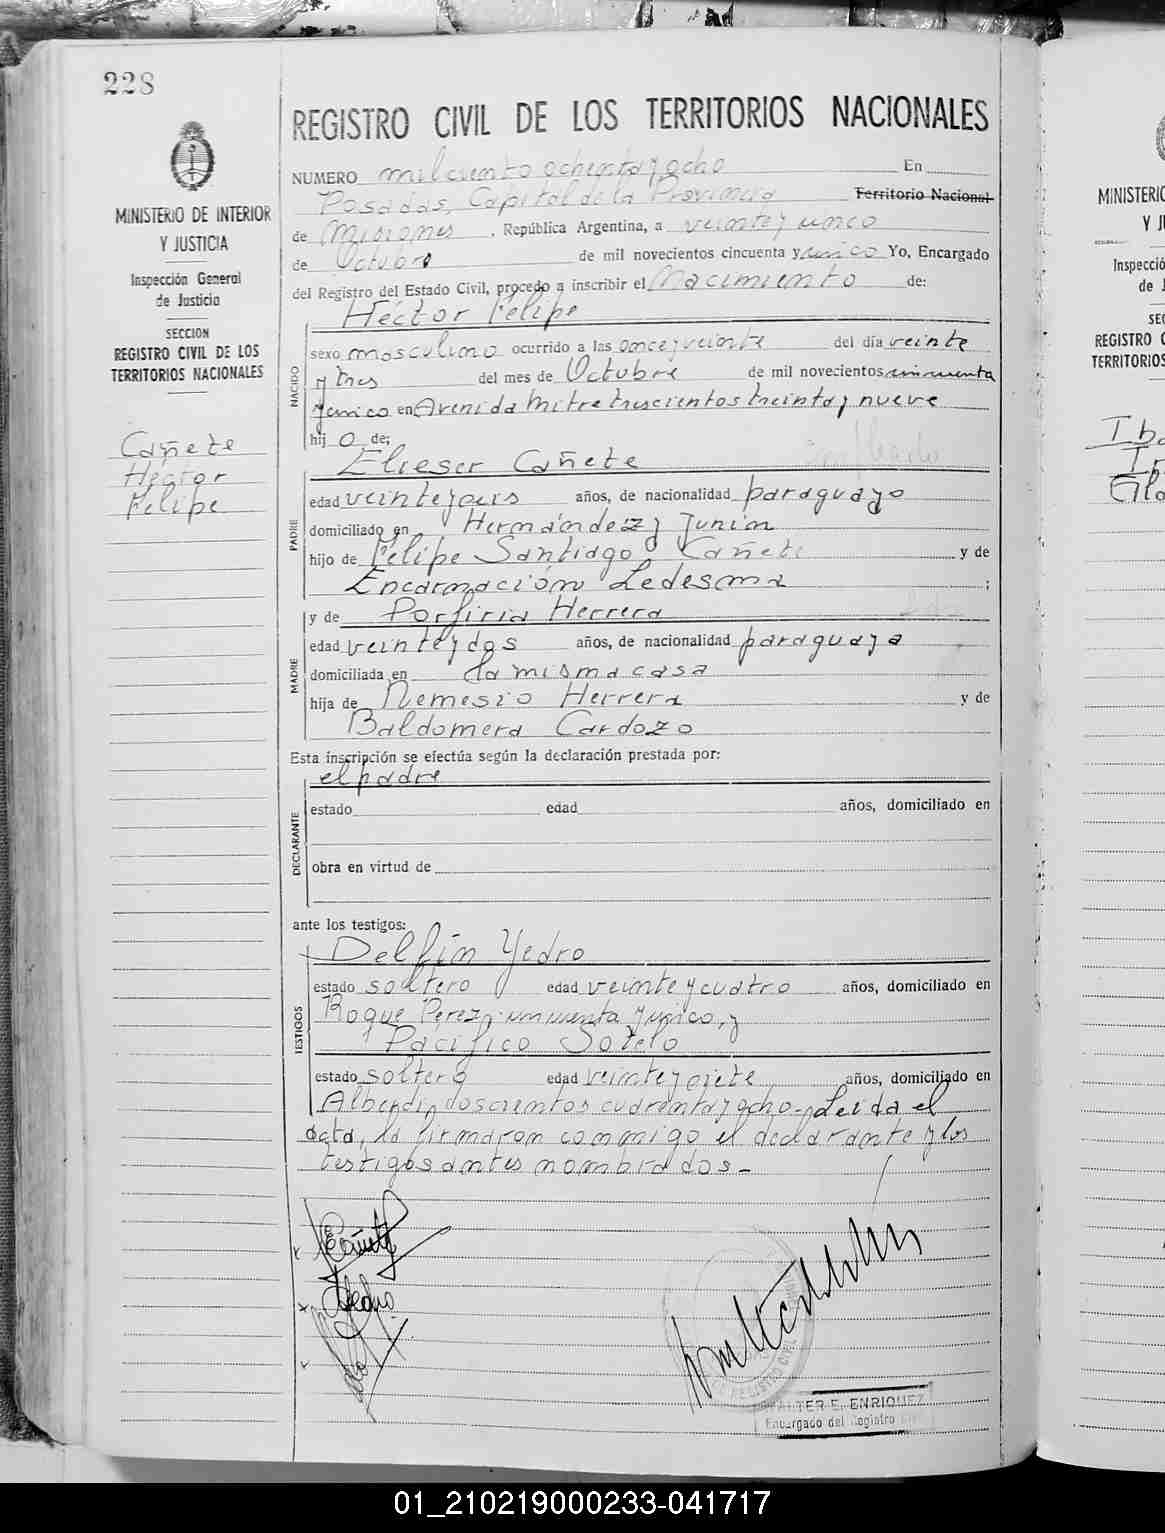 228
REGISTRO CIVIL DE LOS TERRITORIOS NACIONALES
MINISTERIO DE INTERIOR
Y JUSTICIA
Inspección General
de Justicia
SECCION
REGISTRO CIVIL DE LOS
TERRITORIOS NACIONALES
Cañete
Héctor
Felipe
NUMERO mil ciento ochenta y ocho En
Posadas, Capital de la Provincia Territorio Nacional
de Misiones, República Argentina, a veinte y cinco
de Octubre de mil novecientos cincuenta y cinco Yo, Encargado
del Registro del Estado Civil, procedo a inscribir el Nacimiento de:
NACIDO
Héctor Felipe
sexo masculino ocurrido a las once y veinte del día veinte
y tres del mes de Octubre de mil novecientos cincuenta
y cinco en Avenida Mitre trescientos treinta y nueve
hij o de:
PADRE
Elieser Cañete
edad veinte y seis años, de nacionalidad paraguayo
domiciliado en Hernández y Junín
hijo de Felipe Santiago Cañete y de
Encarnación Ledesma ;
MADRE
y de Porfiria Herrera
edad veinte y dos años, de nacionalidad paraguaya
domiciliada en la misma casa
hija de Nemesio Herrera y de
Baldomera Cardozo
Esta inscripción se efectúa según la declaración prestada por:
DECLARANTE
el padre
estado edad años, domiciliado en
obra en virtud de
ante los testigos:
TESTIGOS
Delfín Yedro
estado soltero edad veinte y cuatro años, domiciliado en
Roque Pérez cincuenta y cinco, y
Pacífico Sotelo
estado soltero edad veinte y siete años, domiciliado en
Alberdi doscientos cuarenta y ocho - Leída el
acta, la firmaron conmigo el declarante y los
testigos antes nombrados -
ECañete
Yedro
REGISTRO CIVIL
WALTER E. ENRIQUEZ
Encargado del Registro Civil
MINISTERIO
Y J
Inspecció
de J
SEC
REGISTRO C
TERRITORIOS
01_210219000233-041717